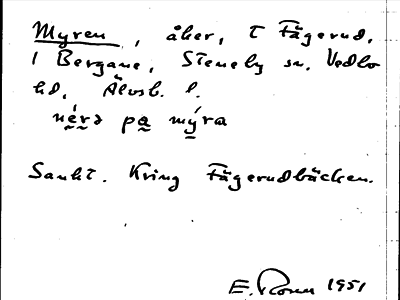 Myren, åker, t Fägerud,
1 Bergane, Steneby sn. Vedbo
hd, Älvsb. l.
nérə pa mýra
Sankt. Kring Fägerudbäcken.
E. 1951